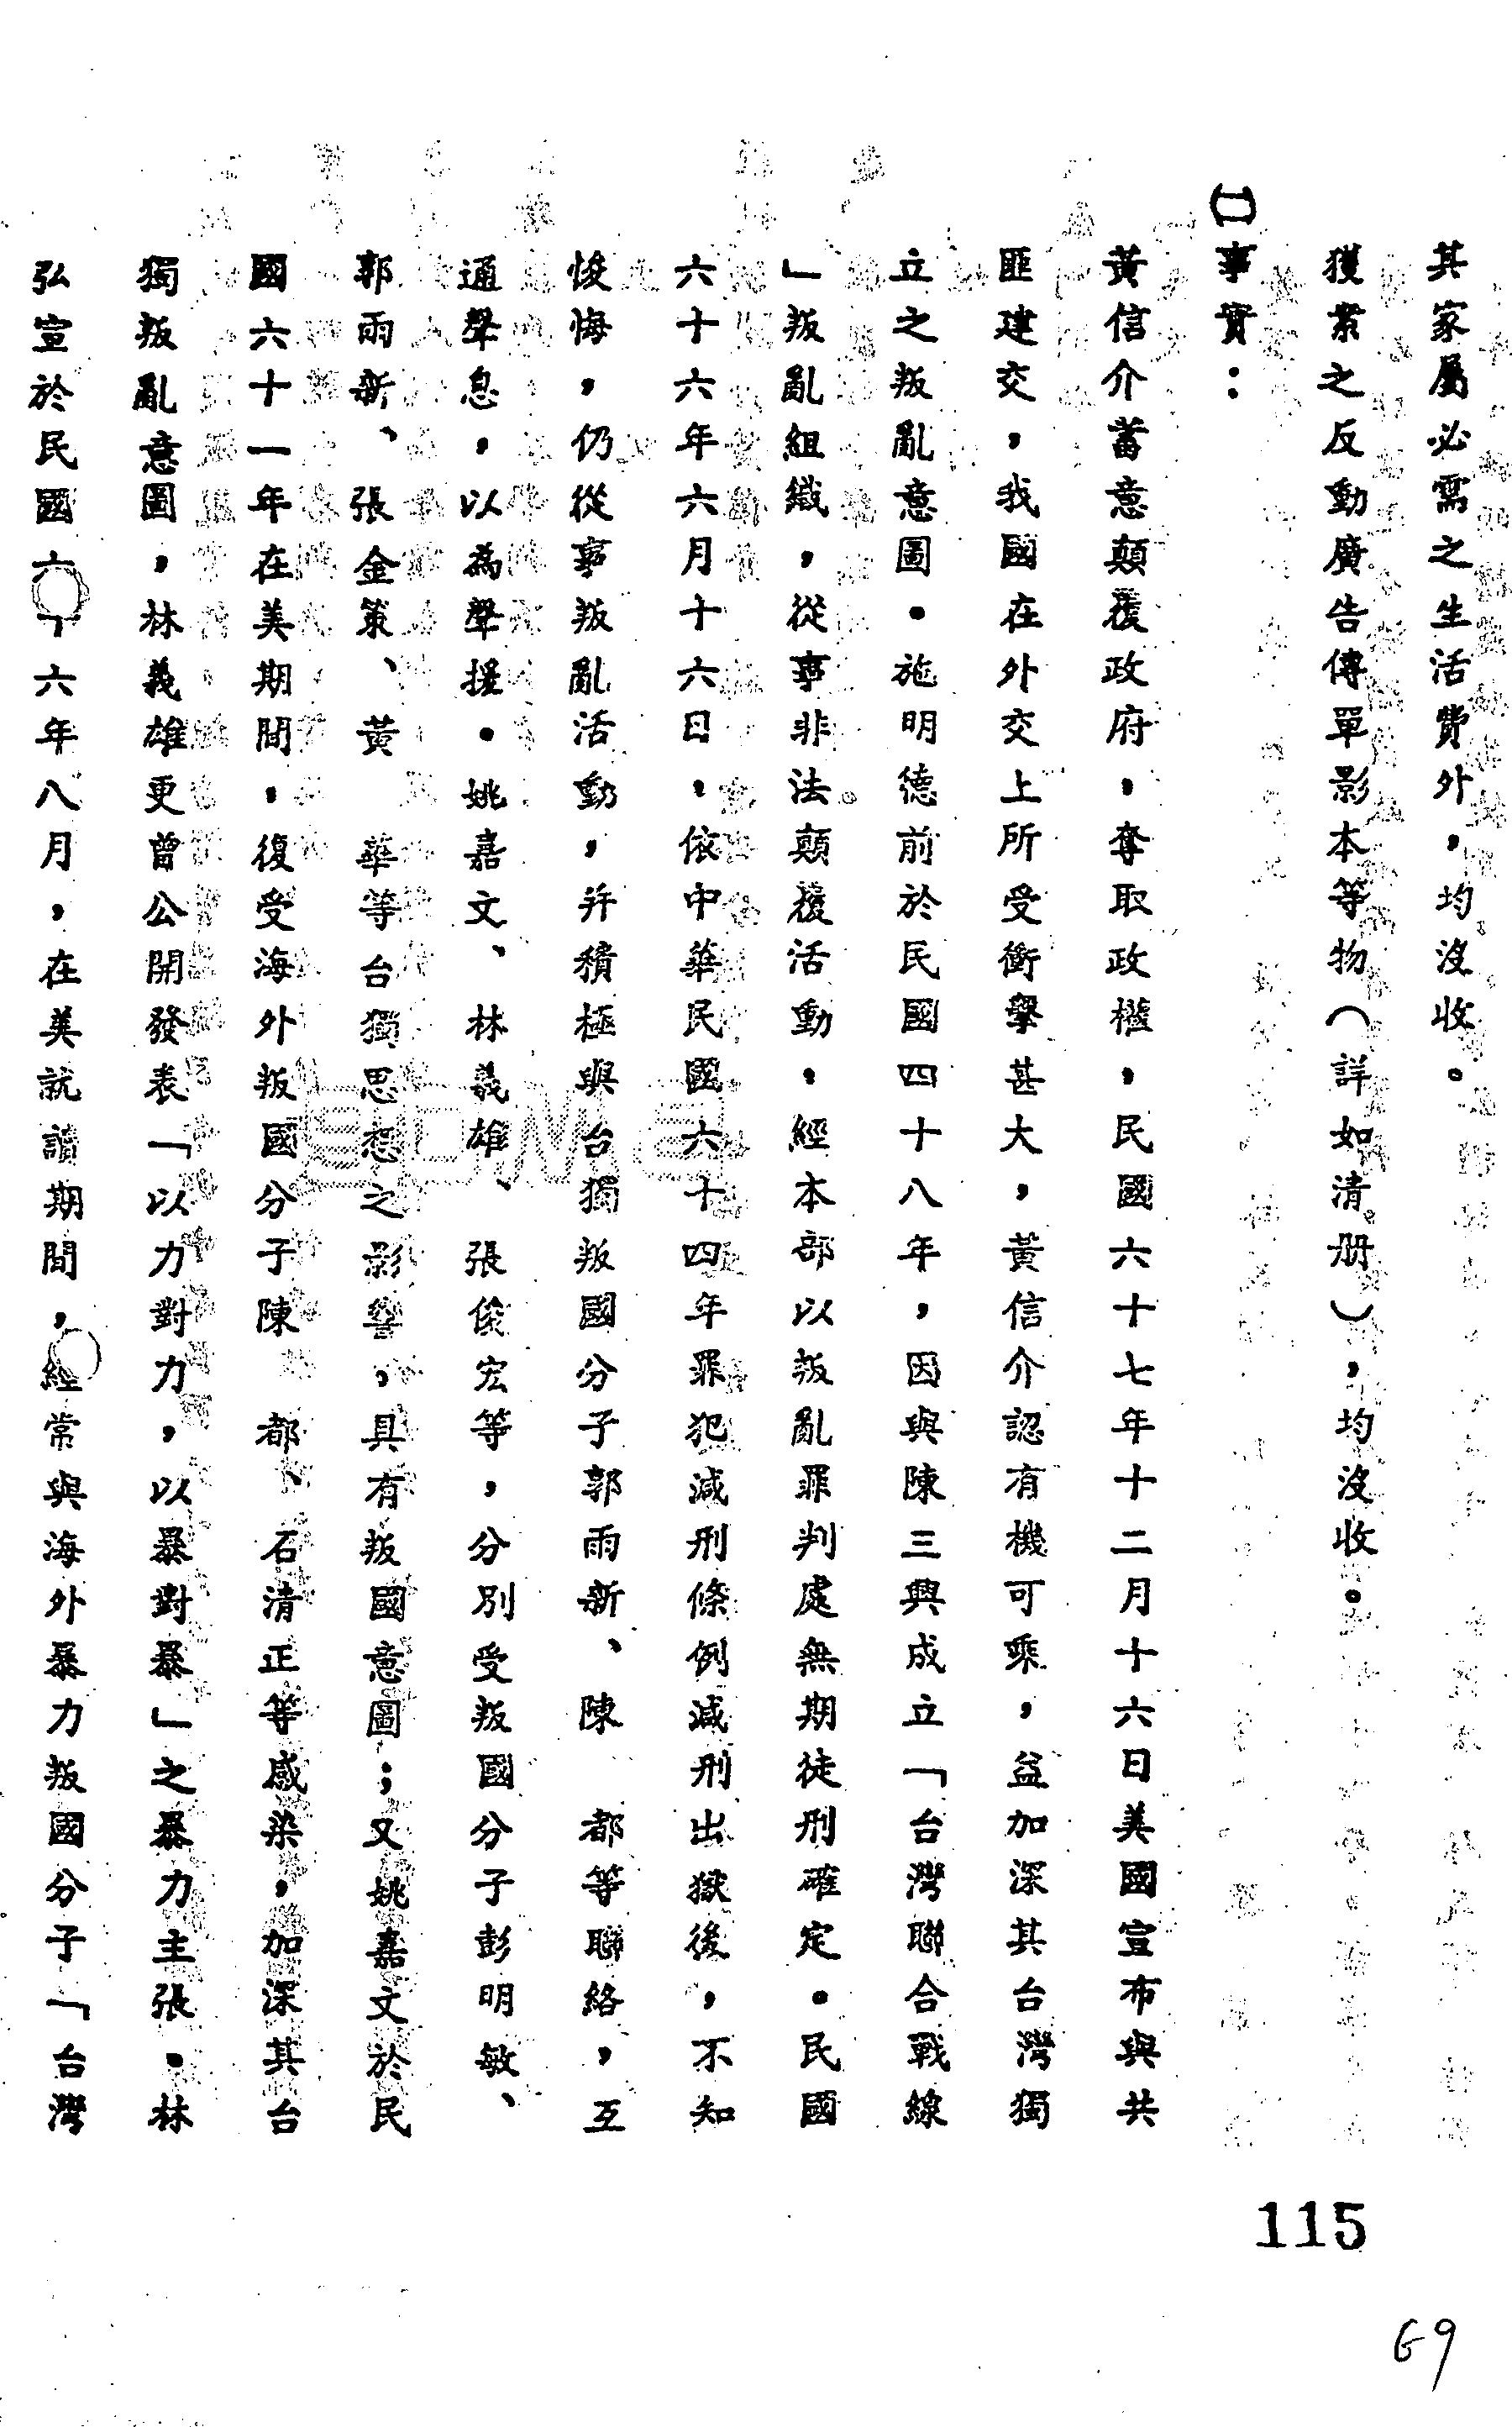 其家屬必需之生活費外，均沒收。
獲案之反動廣告傳單影本等物（詳如清册），均沒收。
㈡事實：
黃信介蓄意顛覆政府，奪取政權，民國六十七年十二月十六日美國宣布與共
匪建交，我國在外交上所受衝擊甚大，黃信介認有機可乘，益加深其台灣獨
立之叛亂意圖。施明德前於民國四十八年，因與陳三興成立「台灣聯合戰線
」叛亂組織，從事非法顛覆活動，經本部以叛亂罪判處無期徒刑確定。民國
六十六年六月十六日，依中華民國六十四年罪犯減刑條例減刑出獄後，不知
悛悔，仍從事叛亂活動，并積極與台獨叛國分子郭雨新、陳　都等聯絡，互
通聲息，以為聲援。姚嘉文、林義雄、張俊宏等，分別受叛國分子彭明敏、
郭雨新、張金策、黃　華等台獨思想之影響，具有叛國意圖；又姚嘉文於民
國六十一年在美期間，復受海外叛國分子陳　都、石清正等感染，加深其台
獨叛亂意圖，林義雄更曾公開發表「以力對力，以暴對暴」之暴力主張。林
弘宣於民國六十六年八月，在美就讀期間，經常與海外暴力叛國分子「台灣
115
69